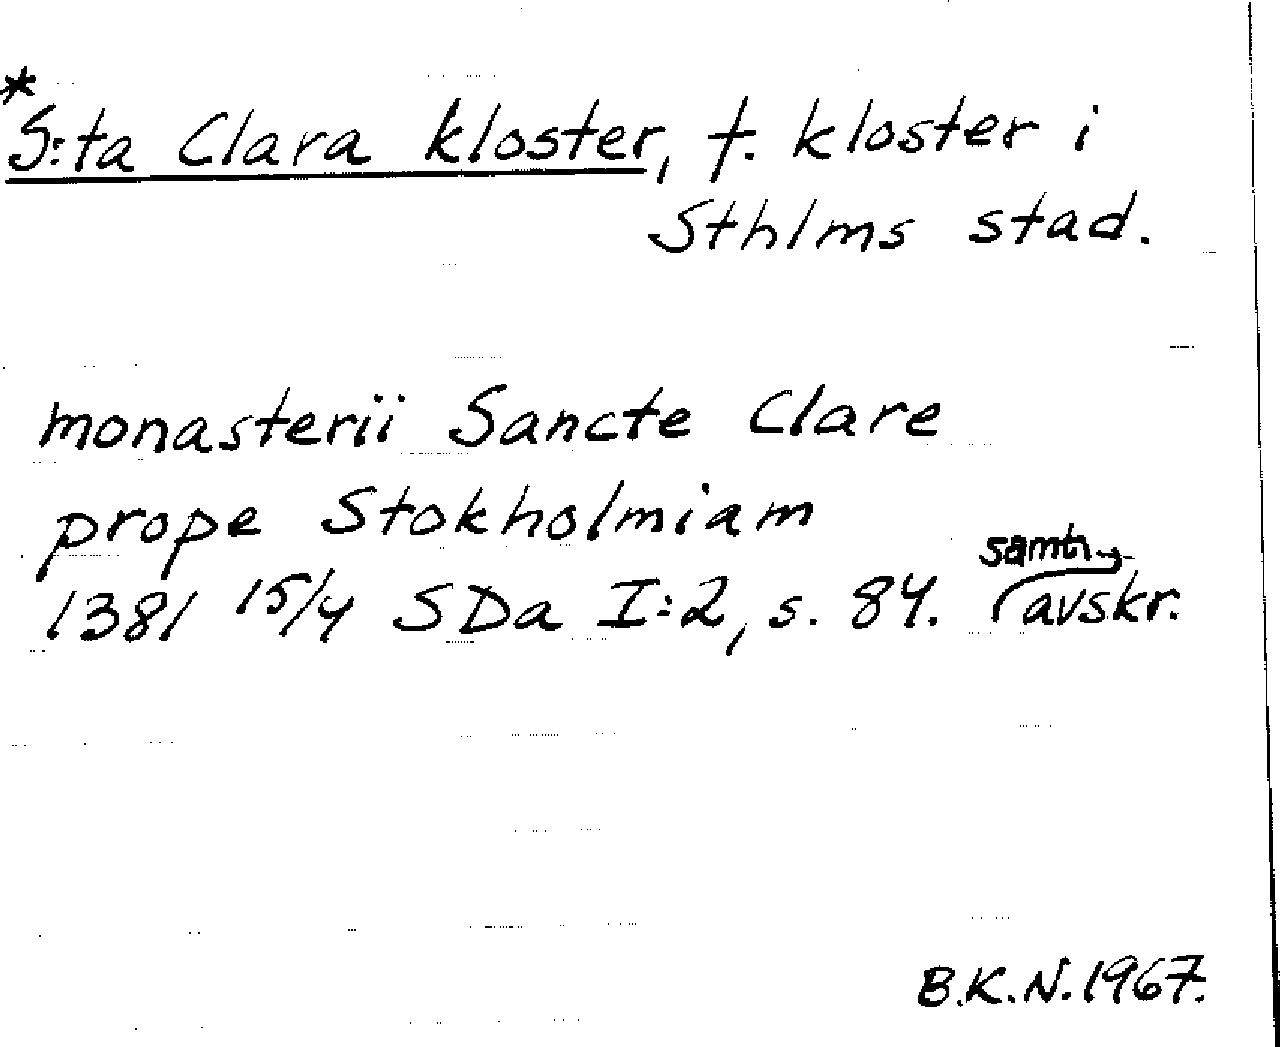 *
S:ta Clara kloster, f. kloster i
Sthlms stad.
monasterii Sancte Clare
prope Stokholmiam
samt.
1381 15/4 SDa I:2, s. 84. avskr.
B.K.N. 1967.